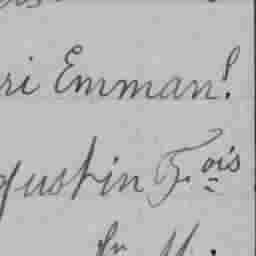 ri Emman.l
gustin F.ois